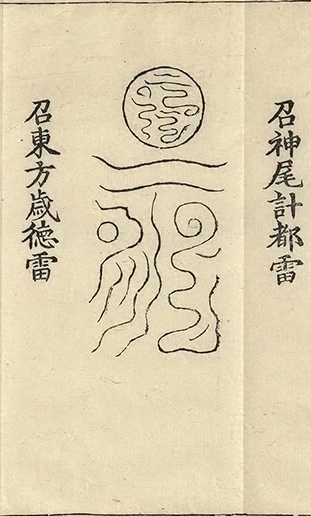 召神尾計都雷
召東方歳徳雷